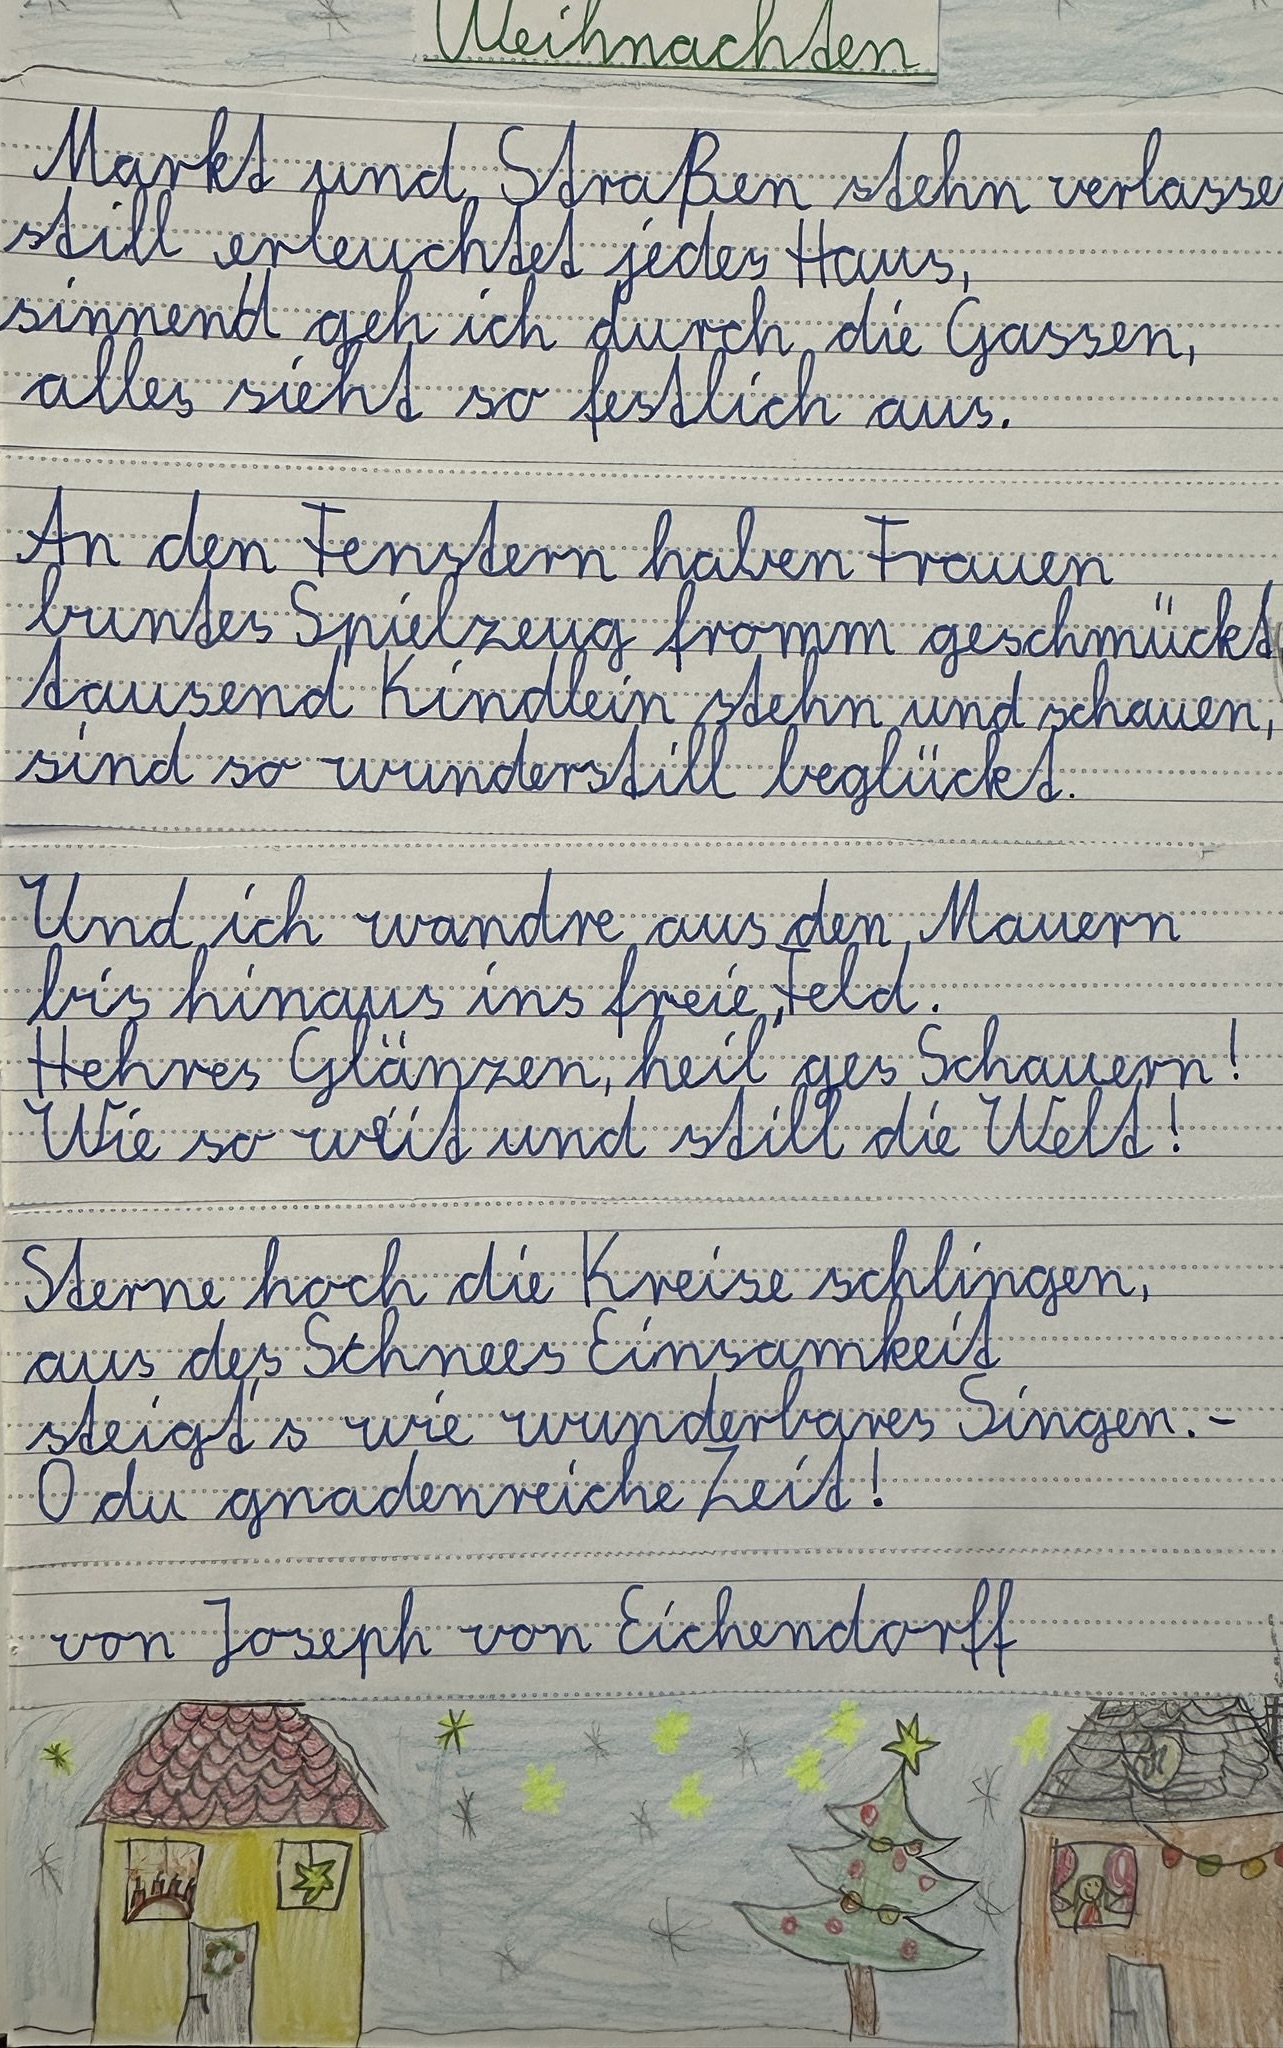 Weihnachten
Markt und Straßen stehn verlasse
still erleuchtet jedes Haus,
sinnend geh ich durch die Gassen,
alles sieht so festlich aus.
An den Fenstern haben Frauen
buntes Spielzeug fromm geschmückt,
tausend Kindlein stehn und schauen,
sind so wunderstill beglückt.
Und ich wandre aus den Mauern
bis hinaus ins freie Feld.
Hehres Glänzen, heil'ges Schauern!
Wie so weit und still die Welt!
Sterne hoch die Kreise schlingen,
aus des Schnees Einsamkeit
steigt's wie wunderbares Singen.-
O du gnadenreiche Zeit!
von Joseph von Eichendorff